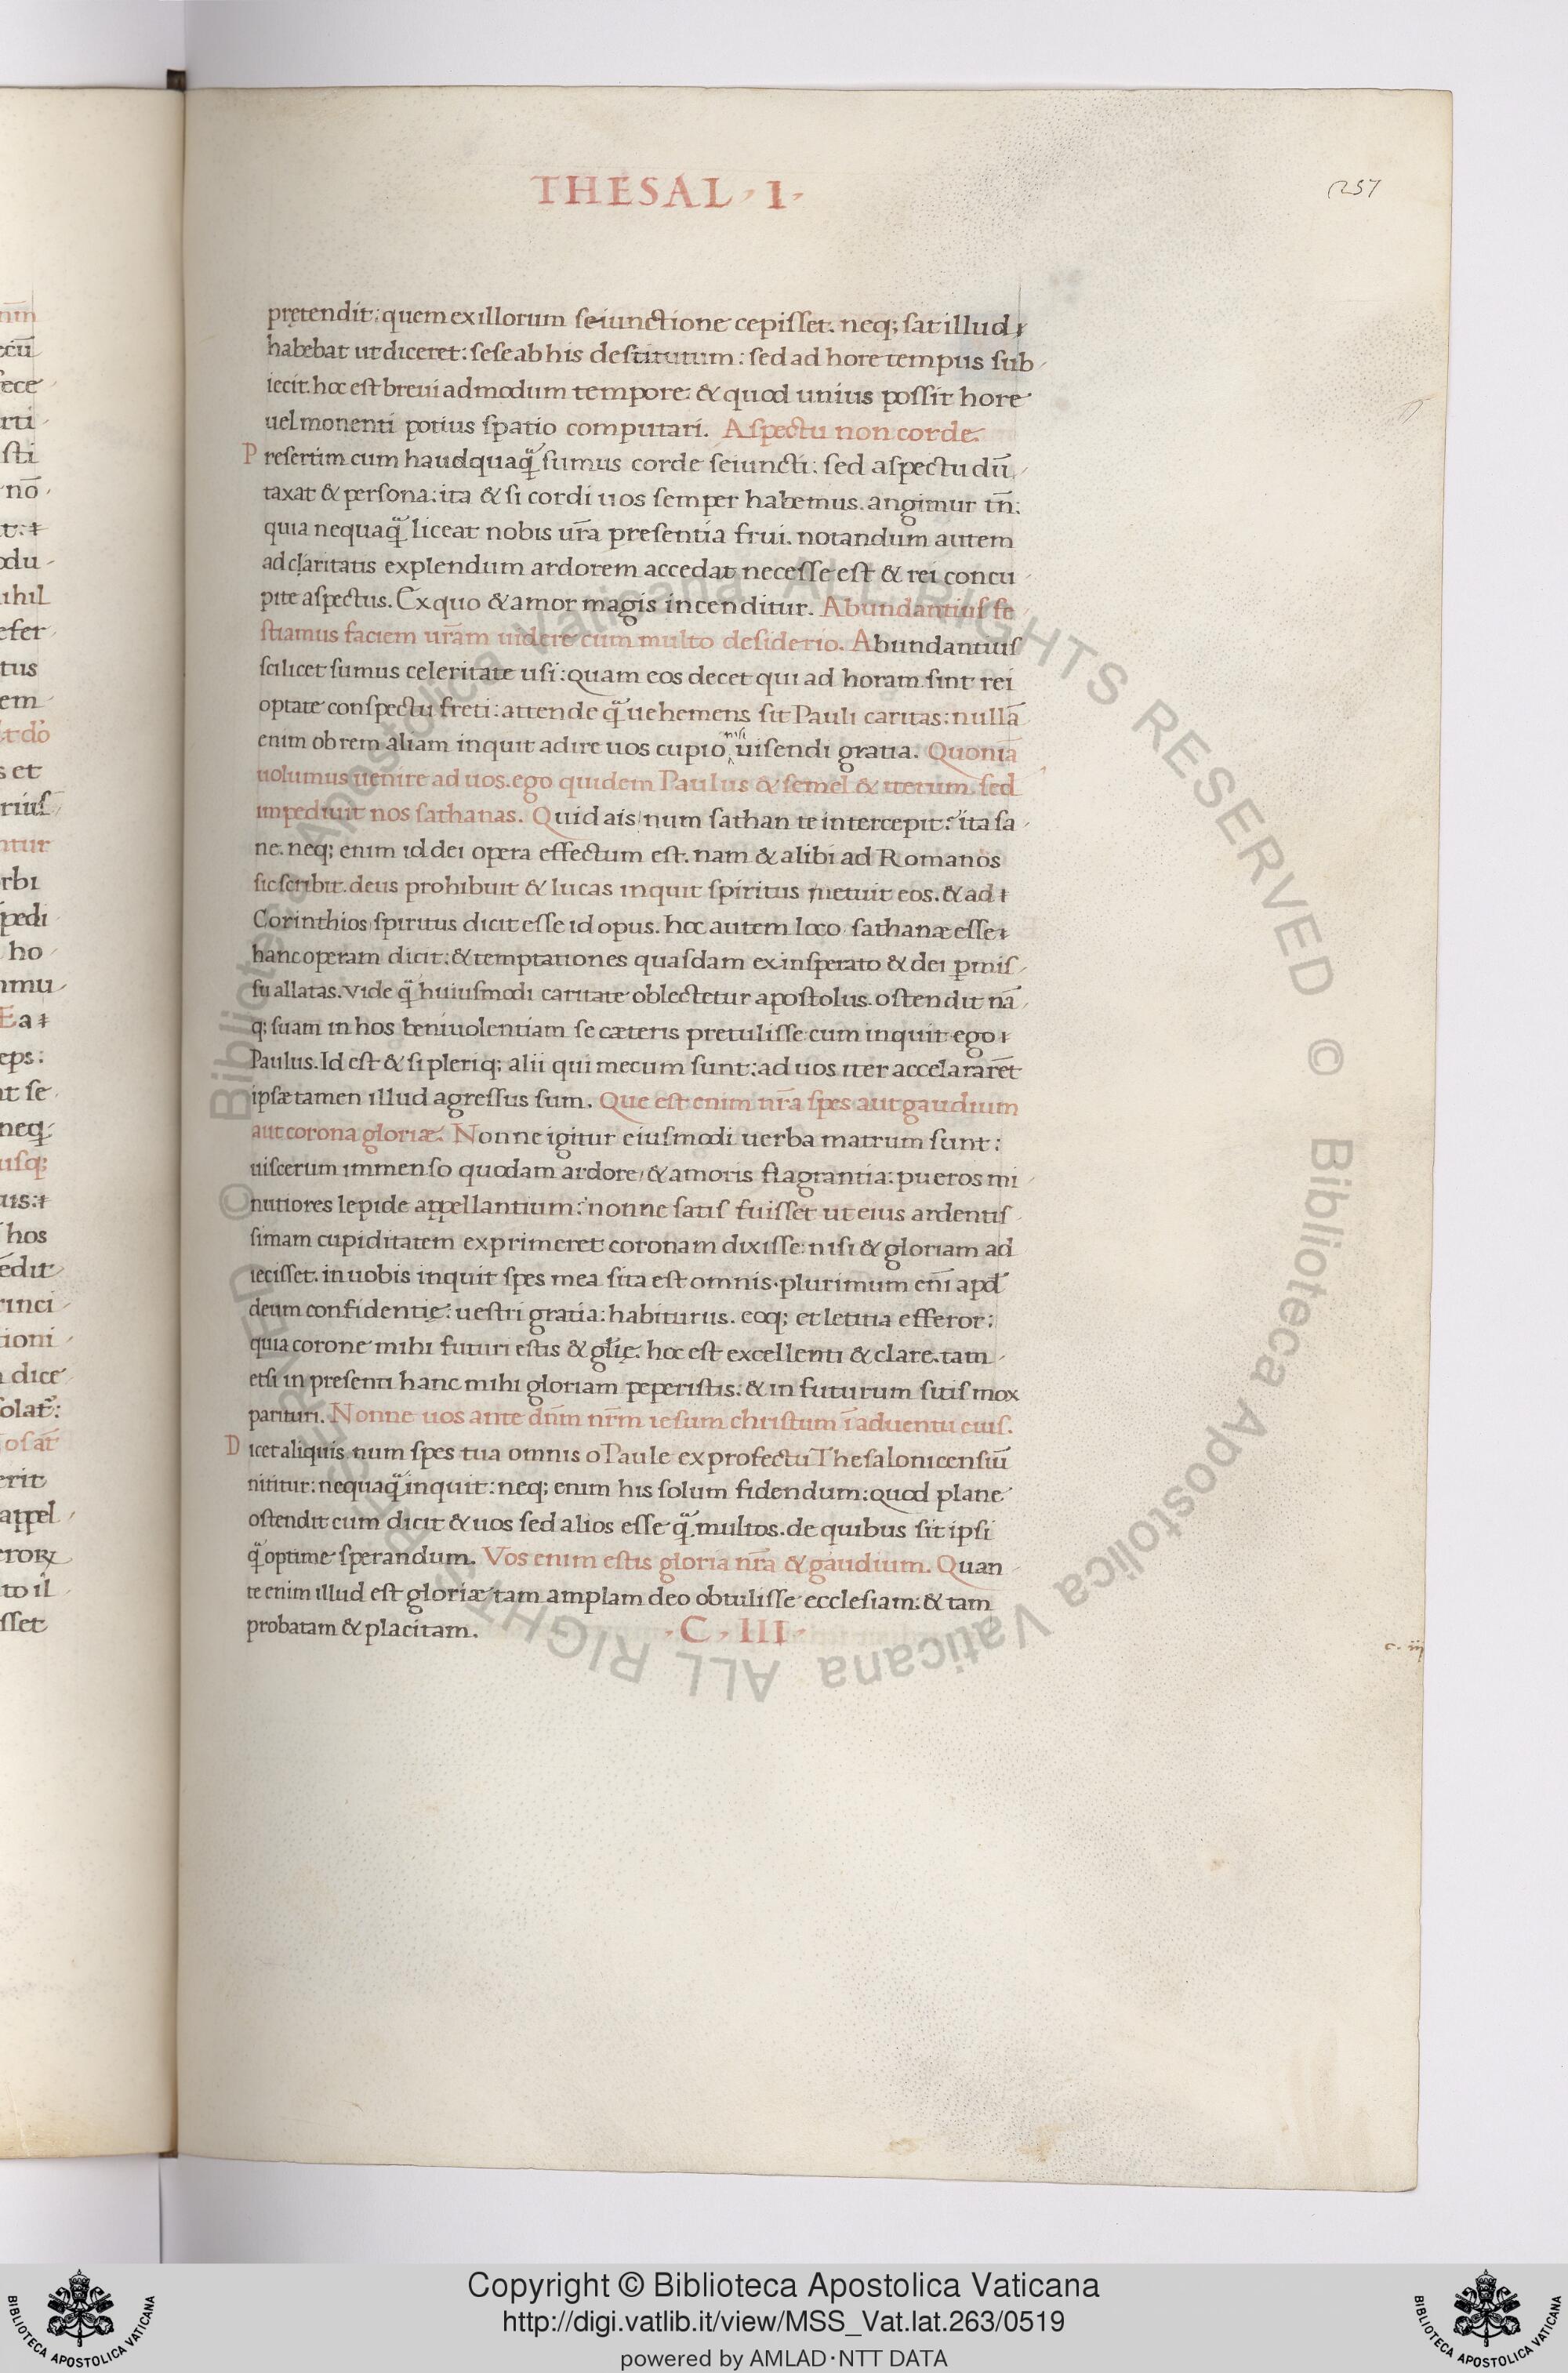 THESAL · I ·
257
prętendit: quem ex illorum seiunctione cepisset. neq; sat illud
habebat ut diceret: sese ab his destitutum: sed ad hore tempus sub
iecit. hoc est breui admodum tempore: & quod unius possit hore
uel monenti potius spatio computari. Aspectu non corde.
Presertim cum haudquaq̃ sumus corde seiuncti: sed aspectu dũ
taxat & persona: ita & si cordi uos semper habemus. angimur tñ:
quia nequaq̃ liceat nobis ur̃a presentia frui. notandum autem
ad claritatis explendum ardorem accedat necesse est & rei concu
pite aspectus. Ex quo & amor magis incenditur. Abundantius fe
stiamus faciem ur̃am uidere cum multo desiderio. Abundantius
scilicet sumus celeritate usi: quam eos decet qui ad horam sint rei
optate conspectu freti: attende q̃ uehemens sit Pauli caritas: nullã
enim ob rem aliam inquit adire uos cupio nisi uisendi gratia. Quoniã
uolumus uenire ad uos. ego quidem Paulus & semel & iterum. sed
impediuit nos sathanas. Quid ais num sathan te intercepit? ita sa
ne. neq; enim id dei opera effectum est. nam & alibi ad Romanos
sic scribit. deus prohibuit & lucas inquit spiritus metuit eos. & ad
Corinthios spiritus dicit esse id opus. hoc autem loco sathanæ esse
hanc operam dicit: & temptationes quasdam ex insperato & dei p̱mis
su allatas. Vide q̃ huiusmodi caritate oblectetur apostolus. ostendit nã
q; suam in hos beniuolentiam se cæteris pretulisse cum inquit ego
Paulus. Id est & si pleriq; alii qui mecum sunt: ad uos iter accelararẽt
ipsæ tamen illud agressus sum. Que est enim nr̃a spes aut gaudium
aut corona gloriæ. Nonne igitur eiusmodi uerba matrum sunt:
uiscerum immenso quodam ardore, & amoris flagrantia: pueros mi
nutiores lepide appellantium? nonne satis fuisset ut eius ardentis
simam cupiditatem exprimeret coronam dixisse: nisi & gloriam ad
iecisset. in uobis inquit spes mea sita est omnis. plurimum enĩ apd̃
deum confidentię: uestri gratia: habiturus. eoq; et letitia efferor:
quia corone mihi futuri estis & glĩę. hoc est excellenti & clare. tam
etsi in presenti hanc mihi gloriam peperistis: & in futurum sitis mox
parituri. Nonne uos ante dñm nr̃m iesum christum ĩ aduentu eius.
Dicet aliquis num spes tua omnis o Paule ex profectu Thesalonicensiũ
nititur: nequaq̃ inquit: neq; enim his solum fidendum: quod plane
ostendit cum dicit & uos sed alios esse q̃ multos. de quibus sit ipsi
q̃ optime sperandum. Vos enim estis gloria nr̃a & gaudium. Quan
te enim illud est gloriæ tam amplam deo obtulisse ecclesiam: & tam
probatam & placitam. · C · III ·
c. iij
Copyright © Biblioteca Apostolica Vaticana
http://digi.vatlib.it/view/MSS_Vat.lat.263/0519
powered by AMLAD·NTT DATA